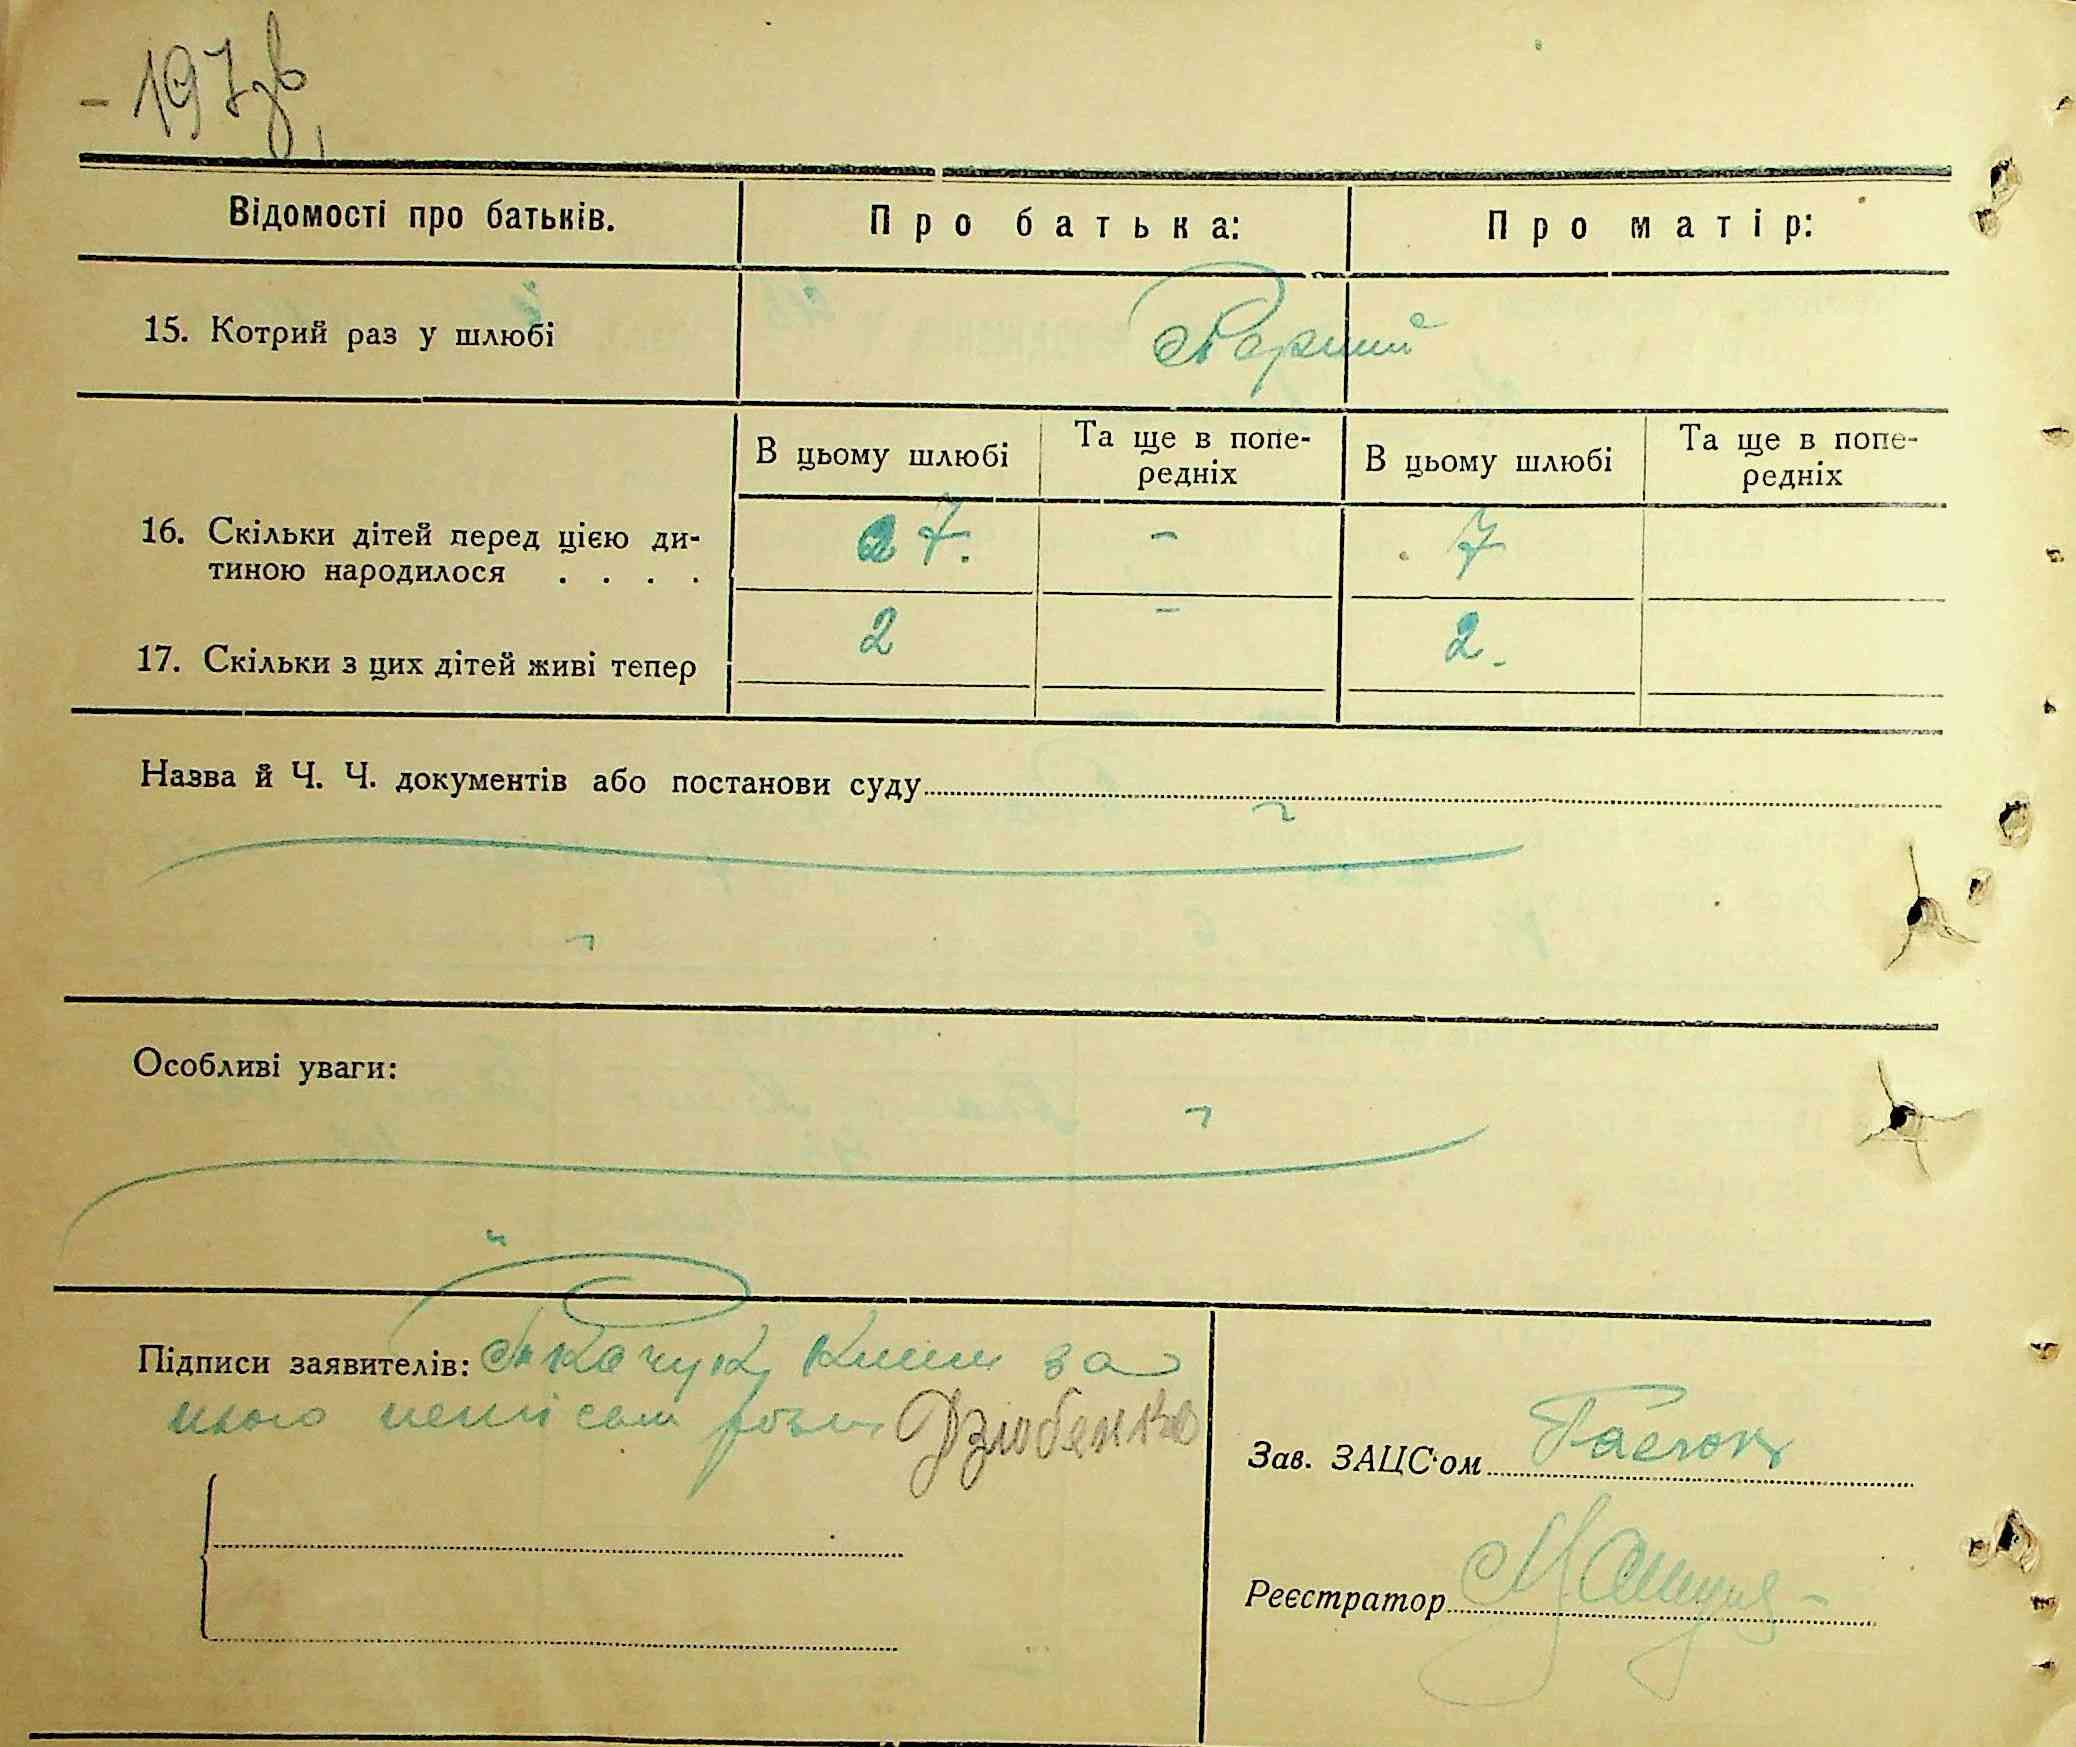 - 197зв,
Відомості про батьків.
Про батька:
Про матір:
15. Котрий раз у шлюбі
Перший
В цьому шлюбі
Та ще в попе-
редніх
В цьому шлюбі
Та ще в попе-
редніх
16. Скільки дітей перед цією ди-
тиною народилося . . . .
7.
-
7
17. Скільки з цих дітей живі тепер
2
-
2.
Назва й Ч. Ч. документів або постанови суду
Особливі уваги:
Підписи заявителів: Ткачук за
нього неписом розп Дзюбенко
Зав. ЗАЦС'ом
Реєстратор